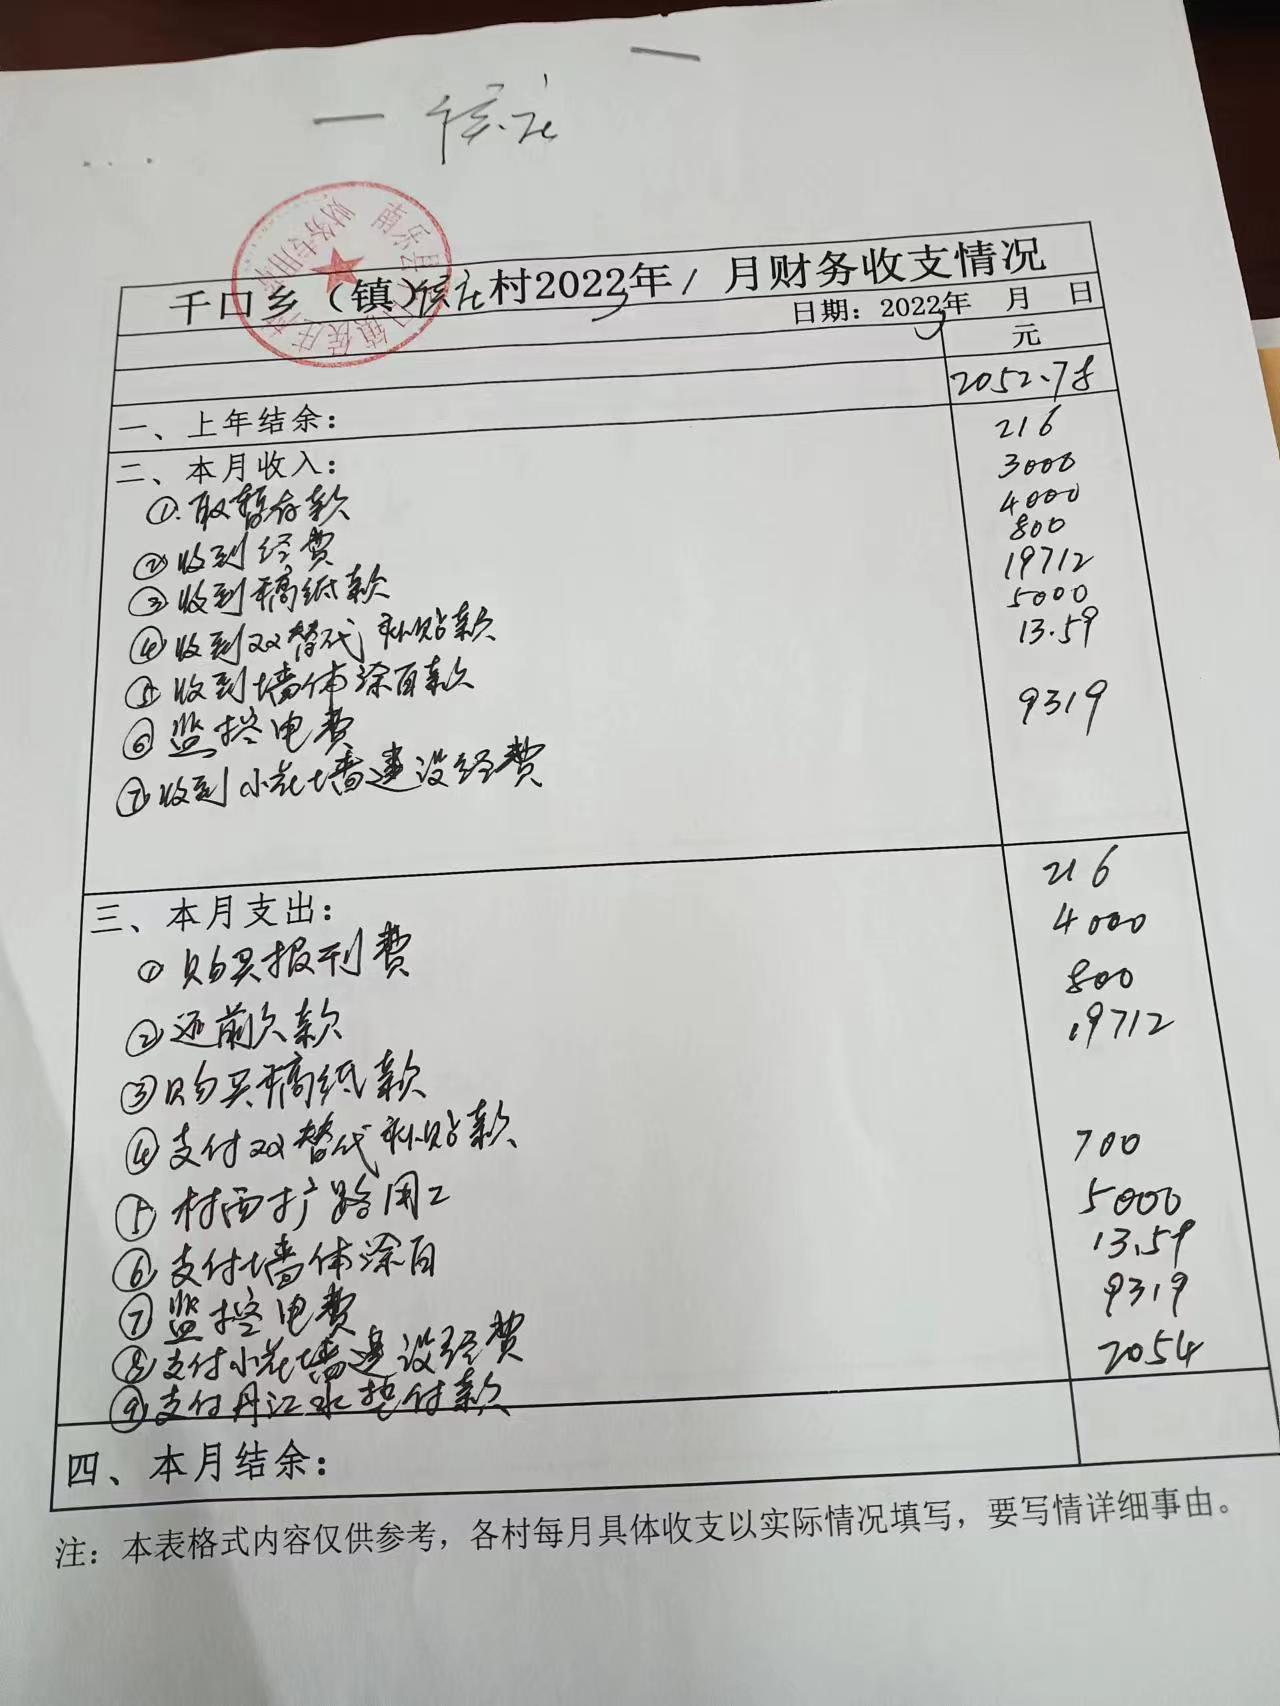 侯庄
南乐县千口镇侯庄村
财务专用章
千口乡（镇）侯庄村2023年1月财务收支情况
日期：2023年 月 日
元
2052.78
一、上年结余：
216
二、本月收入：
3000
①.取暂存款
4000
②收到经费
800
③收到稿纸款
19712
④收到双替代补贴款
5000
⑤收到墙体涂白款
13.59
⑥监控电费
9319
⑦收到小花墙建设经费
三、本月支出：
216
①购买报刊费
4000
②还前欠款
800
③购买稿纸款
19712
④支付双替代补贴款
700
⑤村西扩路用工
5000
⑥支付墙体涂白
13.59
⑦监控电费
9319
⑧支付小花墙建设经费
2054
⑨支付丹江水垫付款
四、本月结余：
注：本表格式内容仅供参考，各村每月具体收支以实际情况填写，要写情详细事由。